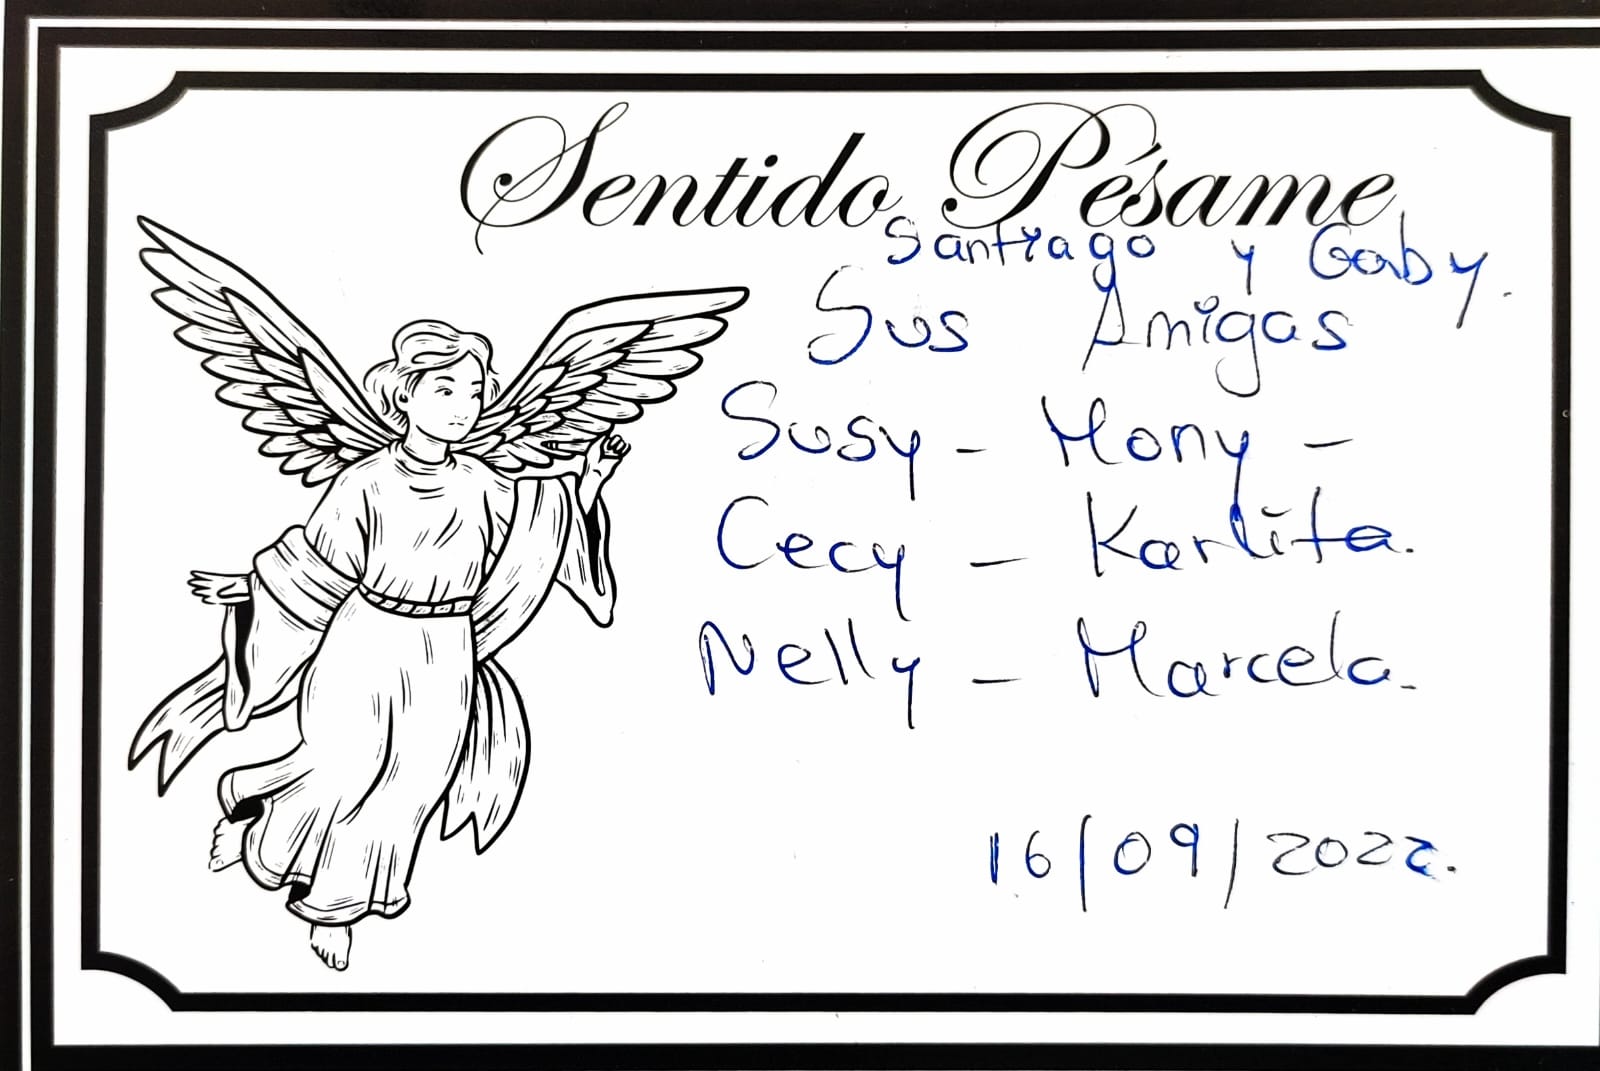 Sentido Pésame
Santiago y Gaby.
Sus Amigas
Susy - Mony -
Cecy - Karlita.
Nelly - Marcela.
16/09/2022.